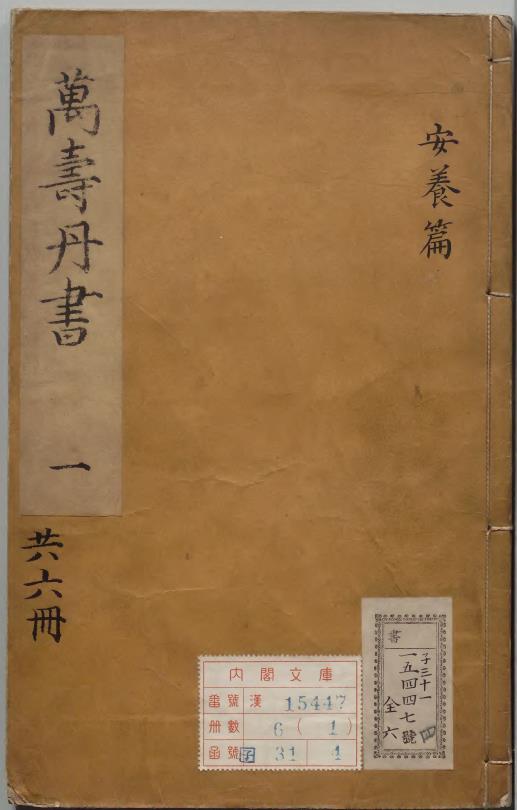 安養篇
萬壽丹書 一
共六冊
內閣文庫
番號 漢 15447
册數 6(1)
函號 子 31 4
書
子三十一
一五四四七號
全六
四